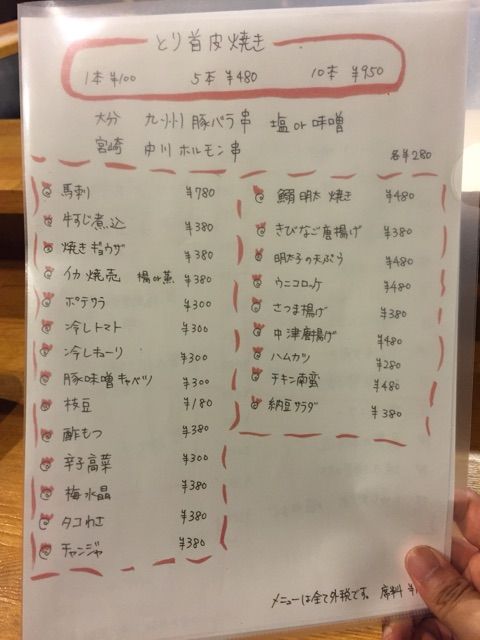 とり首皮焼き
1本 ¥100 5本 ¥480 10本 ¥950
大分 九州豚バラ串 塩or味噌
宮崎 中川ホルモン串 各¥280
馬刺 ¥780
牛すじ煮込 ¥380
焼きギョウザ ¥380
イカ焼売 揚or蒸 ¥380
ポテサラ ¥300
冷しトマト ¥300
冷しキューリ ¥300
豚味噌キャベツ ¥300
枝豆 ¥180
酢もつ ¥380
辛子高菜 ¥300
梅水晶 ¥380
タコわさ ¥380
チャンジャ ¥380
鰯明太焼き ¥480
きびなご唐揚げ ¥380
明太子の天ぷら ¥480
ウニコロッケ ¥480
さつま揚げ ¥380
中津唐揚げ ¥480
ハムカツ ¥280
チキン南蛮 ¥480
納豆サラダ ¥380
メニューは全て外税です。 席料